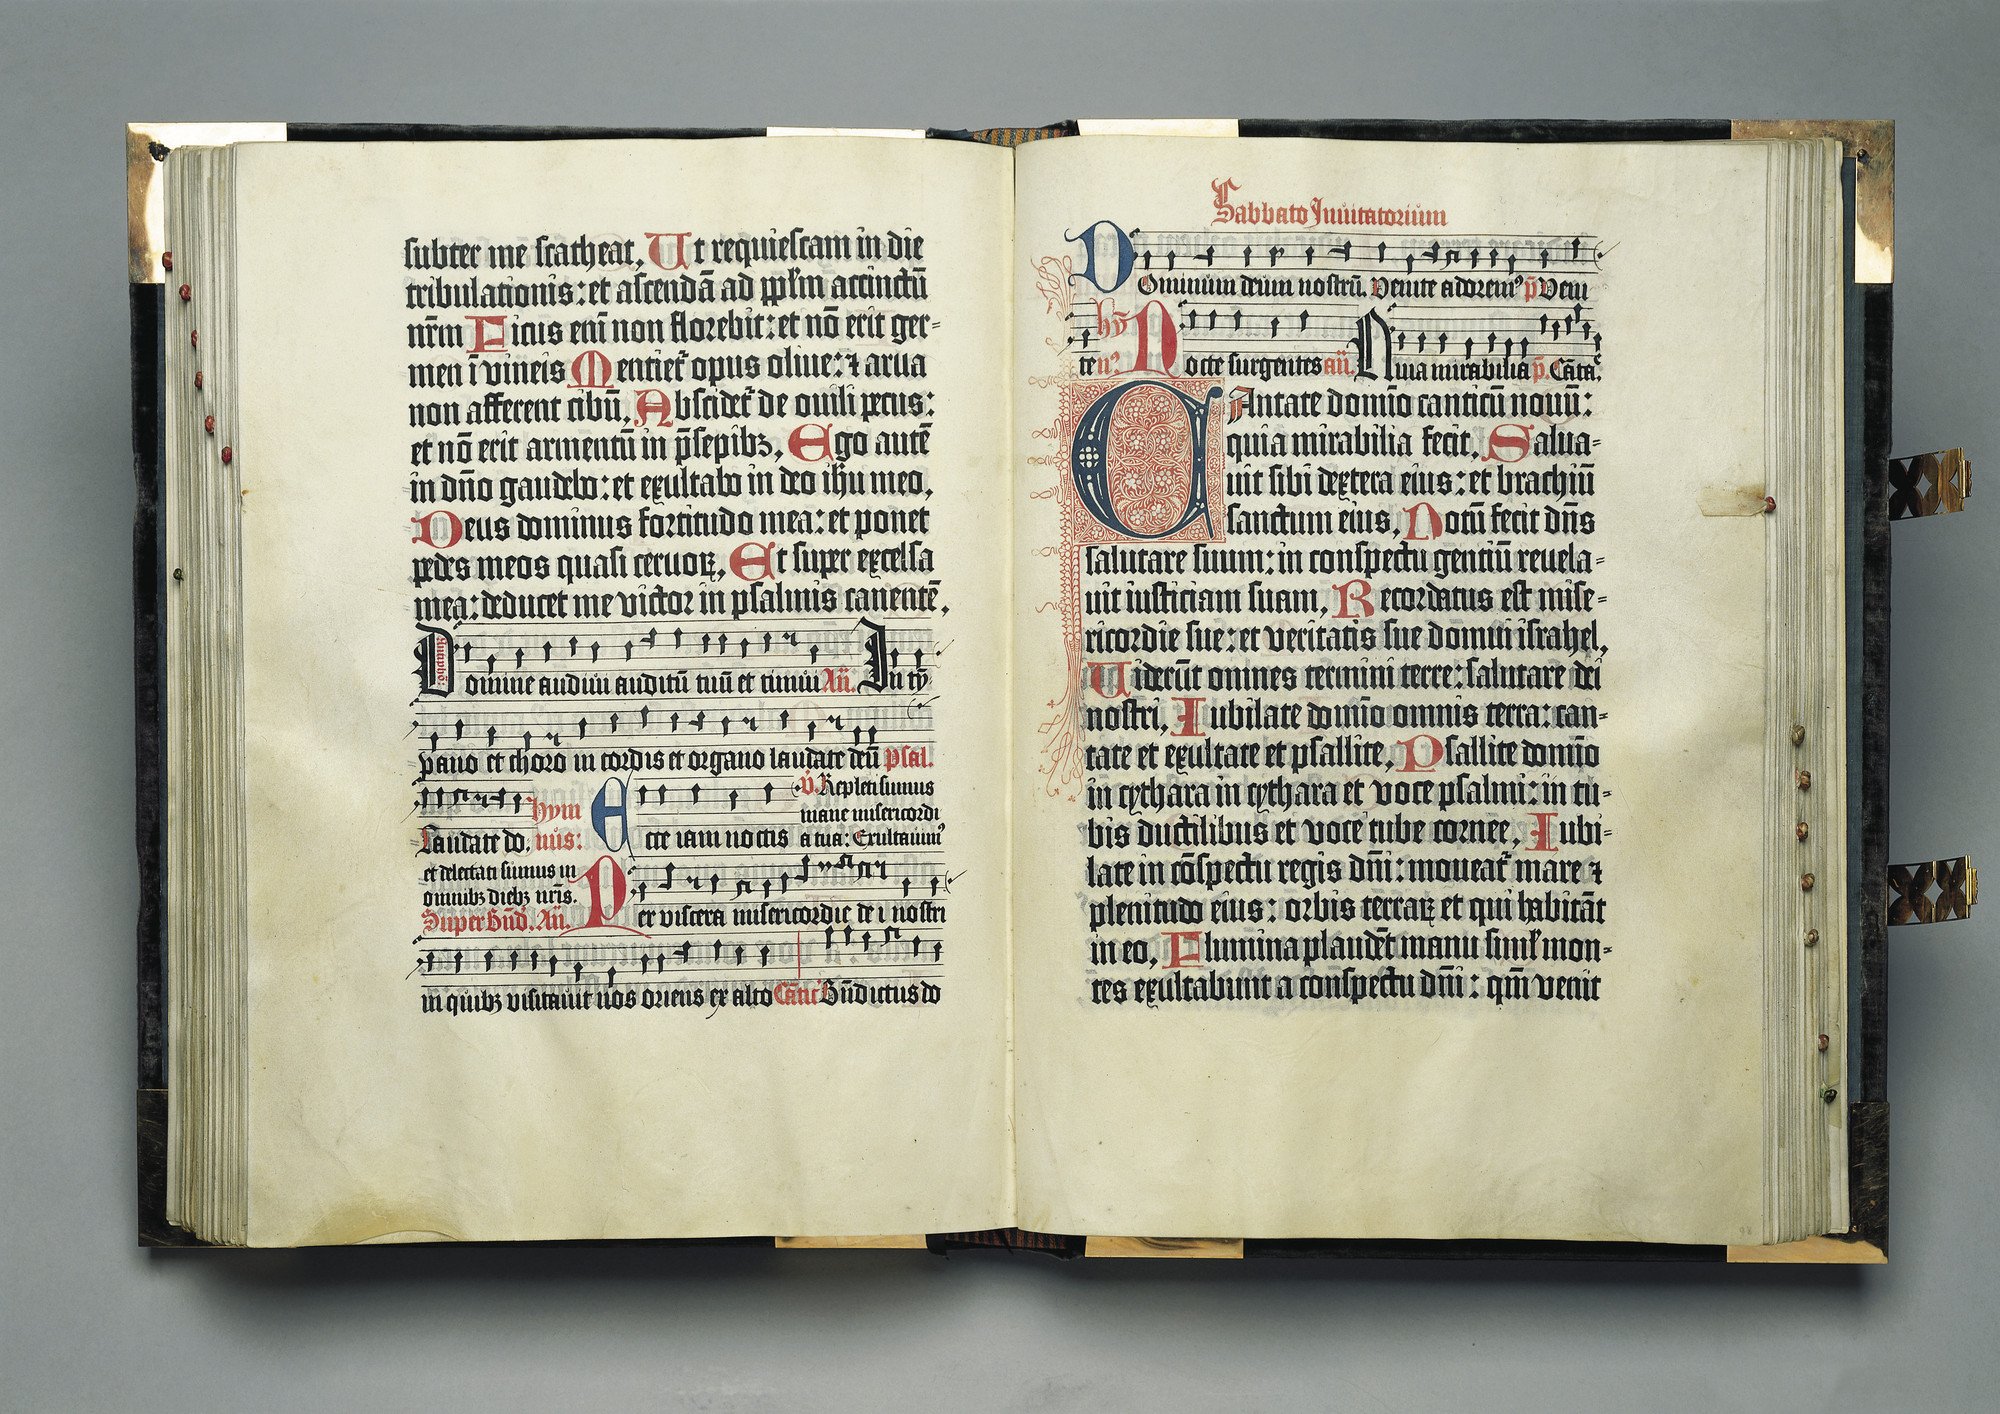 subter me scatheat, Ut requiescam in die
tribulationis: et ascendā ad pplm accinctū
nr̄m Ficus eni non florebit: et nō erit ger=
men ī vineis Mentiet᷑ opus oliue: ⁊ arua
non afferent cibū, Abscidet᷑ de ouili pecus:
et nō erit armentū in p̄sepibꝫ, Ego autē
in dn̄o gaudebo: et exultabo in deo ih̄u meo,
Deus dominus fortitudo mea: et ponet
pedes meos quasi ceruoꝝ, Et super excelsa
mea: deducet me victor in psalmis canentē,
Antipho:
Domine audiui auditū tuū et timui An̄. In tȳ
pano et choro in cordis et organo laudate deū psal.
Laudate do. hymnus: Ecce iam noctis
v̄. Repleti sumus
mane misericordi
a tua: Exultauim᷒
et delectati sumus in
omnibꝫ diebꝫ nr̄is.
Super Bn̄d. An̄. Per viscera misericordie de i nostri
in quibꝫ visitauit nos oriens ex alto Cātic᷒ Bn̄dictus do
Sabbato Inuitatorium
Dominum deum nostrū. Venite adorem᷒ p̄ Veni
te n᷒ hy̅ Nocte surgentes an̄. Quia mirabilia p̄. Cāta.
CAntate domīo canticū nouū:
quia mirabilia fecit, Salua=
uit sibi dextera eius: et brachiū
sanctum eius, Notū fecit dn̄s
salutare suum: in conspectu gentiū reuela=
uit iusticiam suam, Recordatus est mise=
ricordie sue: et veritatis sue domui israhel,
Uiderūt omnes termini terre: salutare dei
nostri, Iubilate domīo omnis terra: can=
tate et exultate et psallite, Psallite domīo
in cythara in cythara et voce psalmi: in tu=
bis ductilibus et voce tube cornee, Iubi=
late in cōspectu regis dn̄i: moueat᷑ mare ⁊
plenitudo eius: orbis terraꝝ et qui habitāt
in eo, Flumina plaudēt manu simł mon=
tes exultabunt a conspectu dn̄i: qm̄ venit